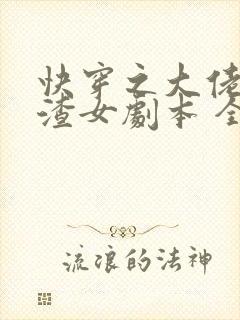 快穿之大佬
渣女劇本 全
流浪的法神